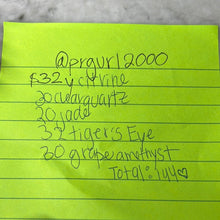 @prgurl2000
32 citrine
20 clear quartz
20 jade
32 tiger's Eye
30 grape amethyst
Total: 144♡